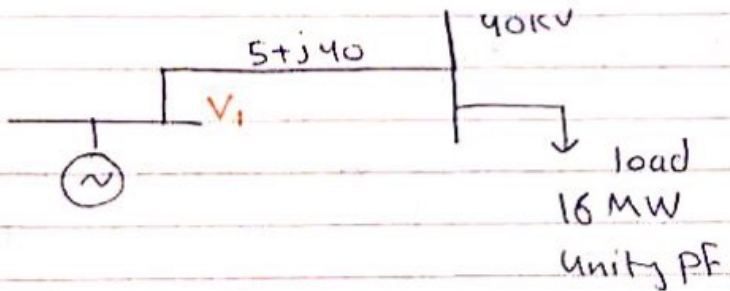 40KV
5+j40
V₁
~
load
16 MW
Unity PF